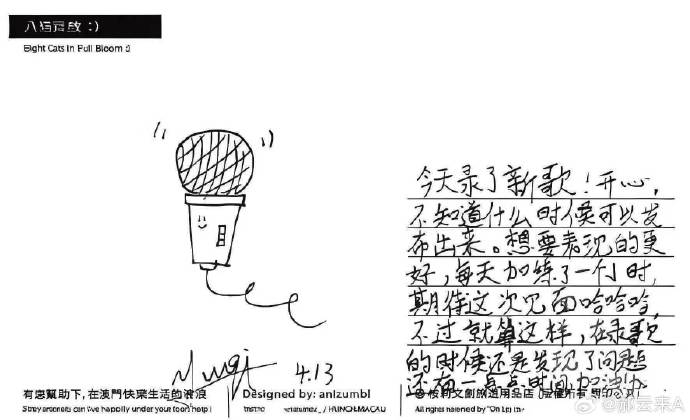 八猫齊 :)
Eight Cats in Full Bloom :)
今天录了新歌！开心，
不知道什么时候可以发
布出来。想要表现的更
好，每天加练了一小时，
期待这次见面哈哈哈，
不过就算这样，在录歌
的时候还是发现了问题
还有一点点时间加油
4.13
有您幫助下，在澳門快樂生活的浪浪
Designed by: anizumbi
文創旅遊用品店
All rights reserved by
@郝云来A